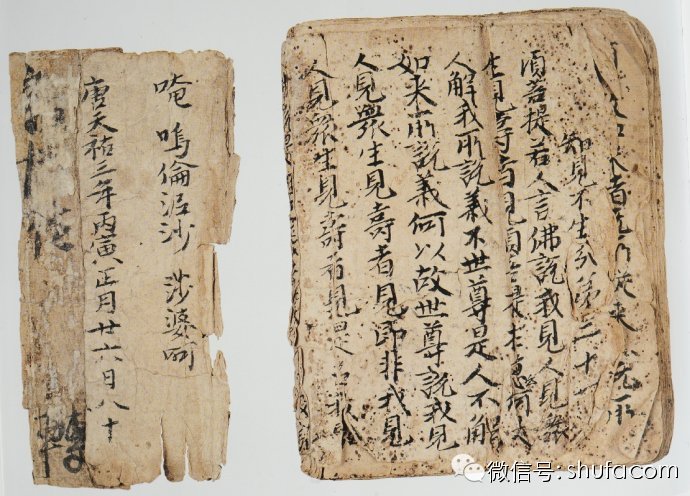 知見不生分第三十
須菩提若人言佛說我見人見眾
生見壽者見
人解我所說義不世尊是人不解
如来所說義何以故世尊說我見
人見眾生見壽者見即非我見
人見眾生見壽者見是名我
唵 嗚倫泥沙 莎婆訶
唐天祐三年丙寅正月廿六日八十
微信号: shufacom